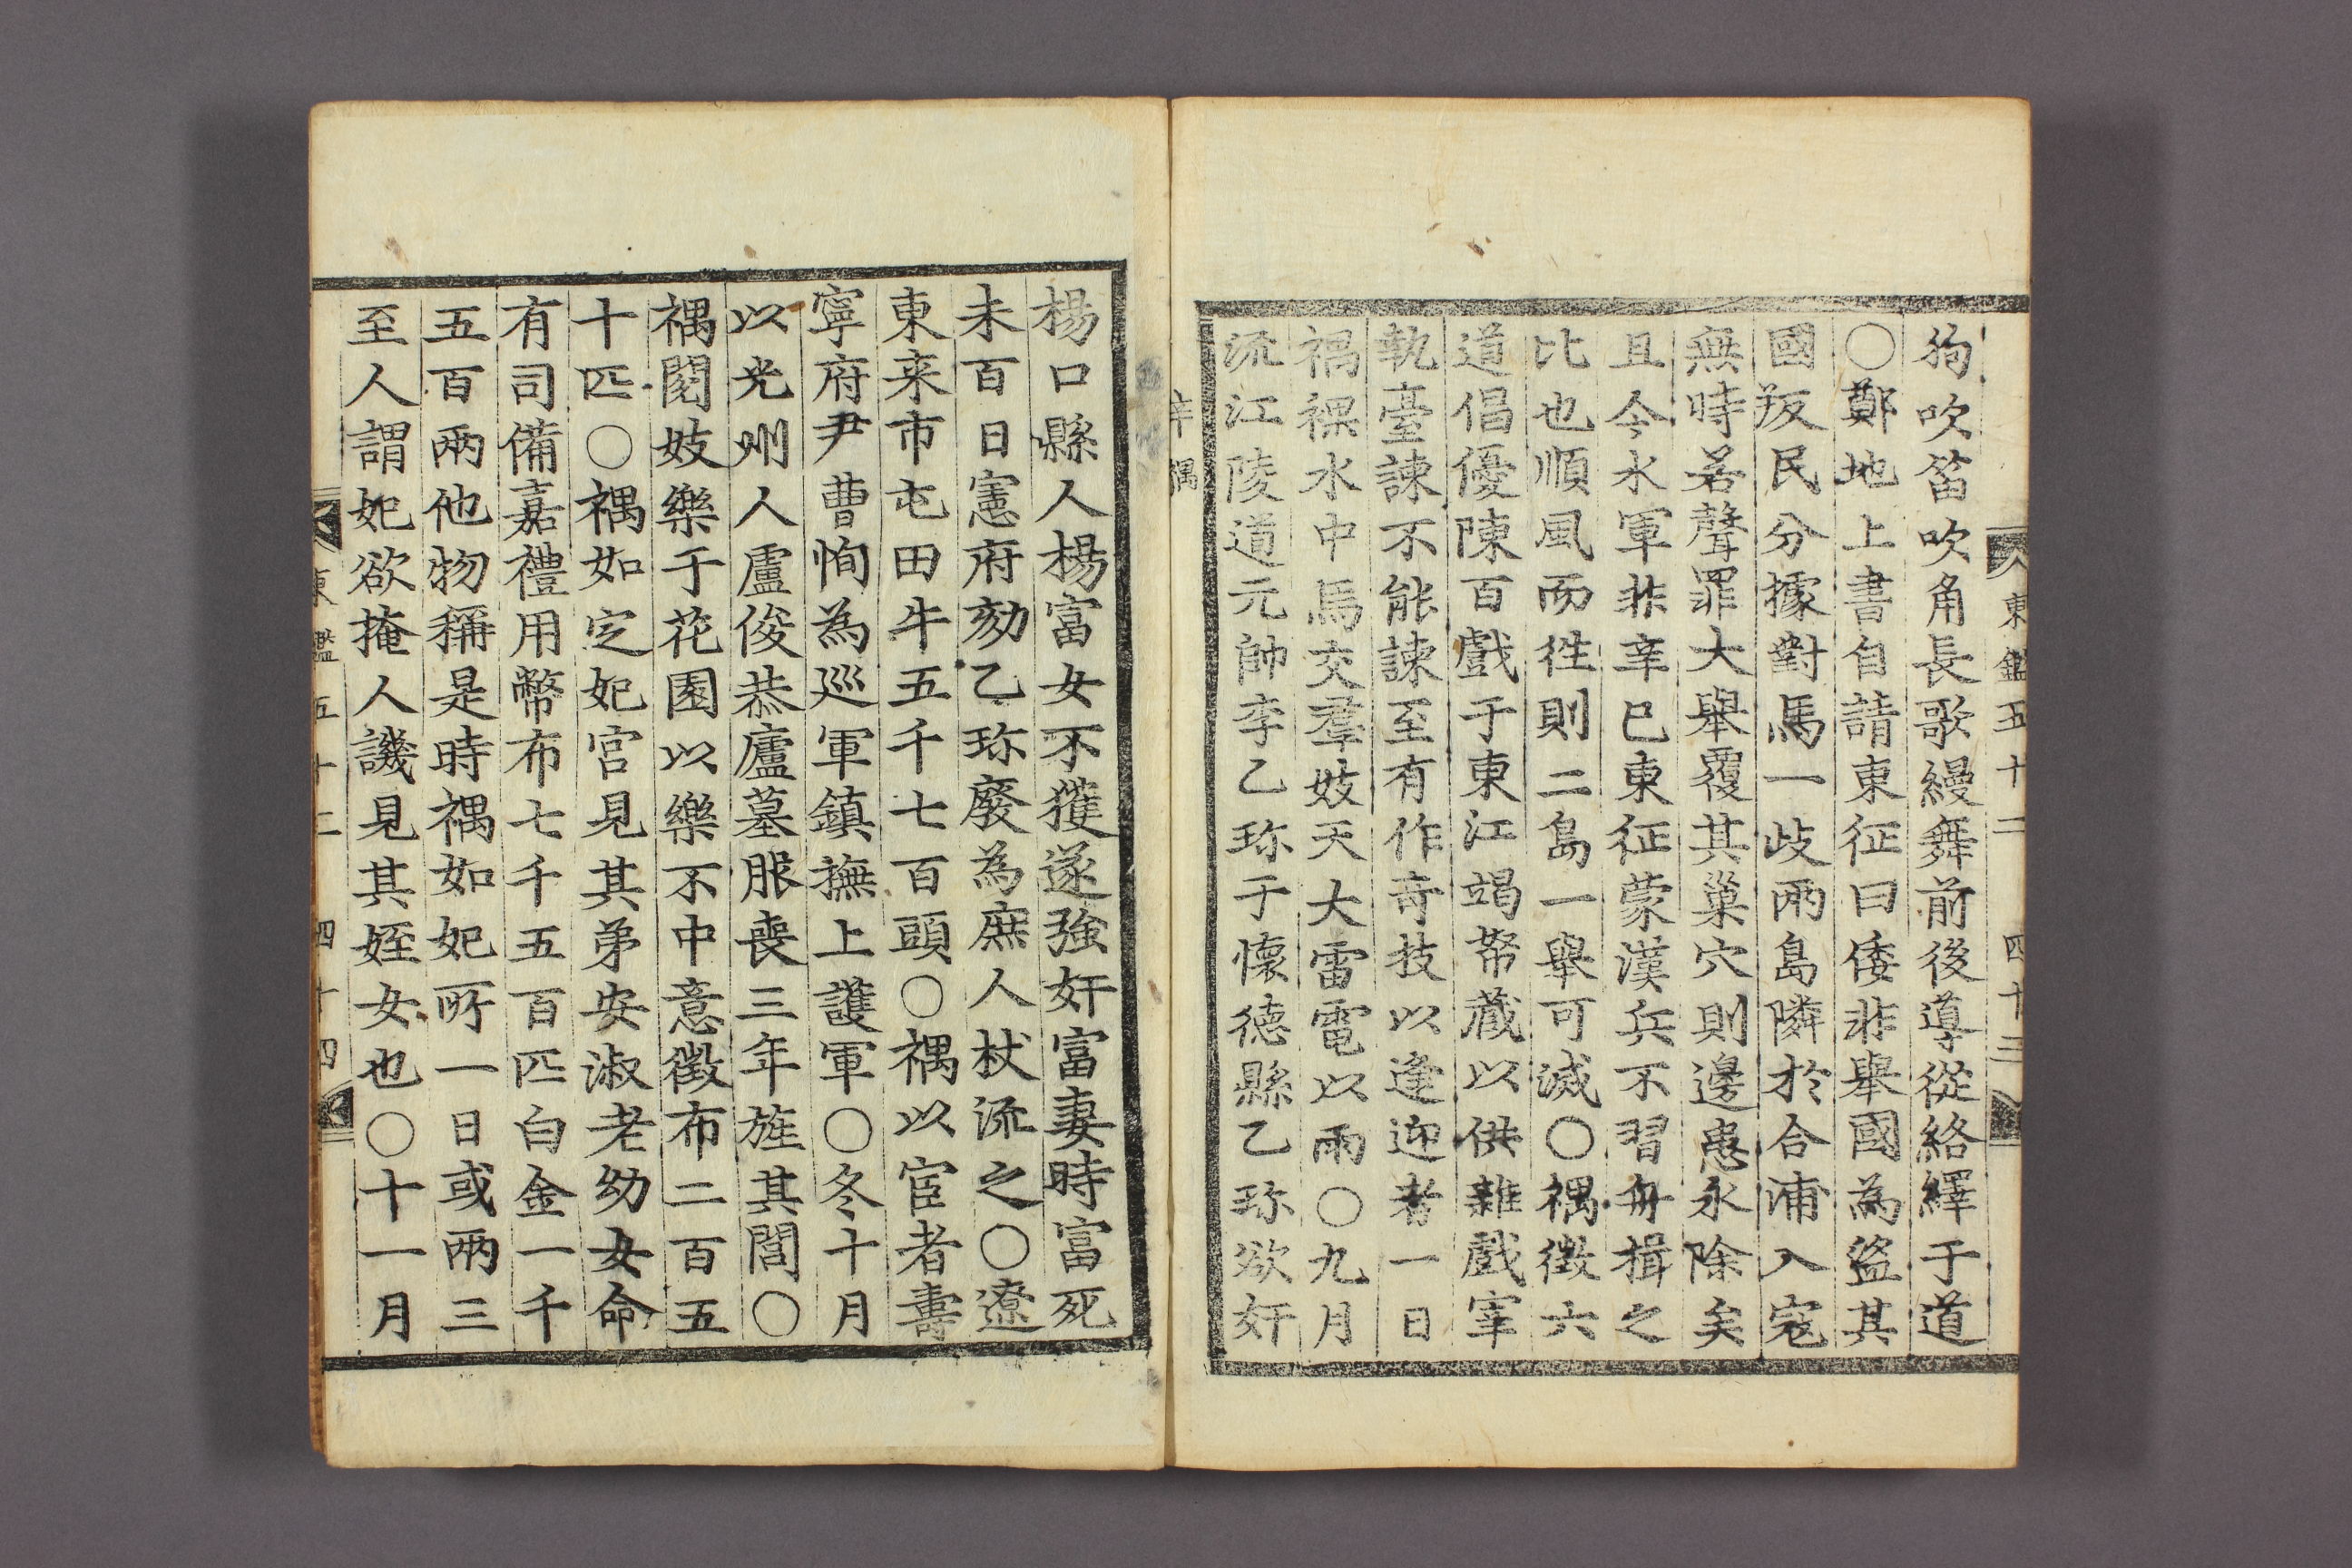 東鑑五十二 四十三
狗吹笛吹角長歌縵舞前後導從絡繹于道
○鄭地上書自請東征曰倭非舉國為盜其
國叛民分據對馬一歧兩島隣於合浦入寇
無時若聲罪大舉覆其巢穴則邊患永除矣
且今水軍非辛巳東征蒙漢兵不習舟楫之
比也順風而徃則二島一舉可滅○禑徵六
道倡優陳百戲于東江竭帑藏以供雜戲宰
執臺諫不能諫至有作奇技以逢迎者一日
禑裸水中馬交羣妓天大雷電以雨○九月
流江陵道元帥李乙珎于懷德縣乙珎欲奸
辛禑
楊口縣人楊富女不獲遂強奸富妻時富死
未百日憲府劾乙珎廢為庶人杖流之○遼
東来市屯田牛五千七百頭○禑以宦者壽
寧府尹曹恂為巡軍鎮撫上護軍○冬十月
以光州人盧俊恭廬墓服喪三年旌其閭○
禑閱妓樂于花園以樂不中意徵布二百五
十匹○禑如定妃宮見其弟安淑老幼女命
有司備嘉禮用幣布七千五百匹白金一千
五百兩他物稱是時禑如妃所一日或兩三
至人謂妃欲掩人譏見其姪女也○十一月
東鑑五十二 四十四